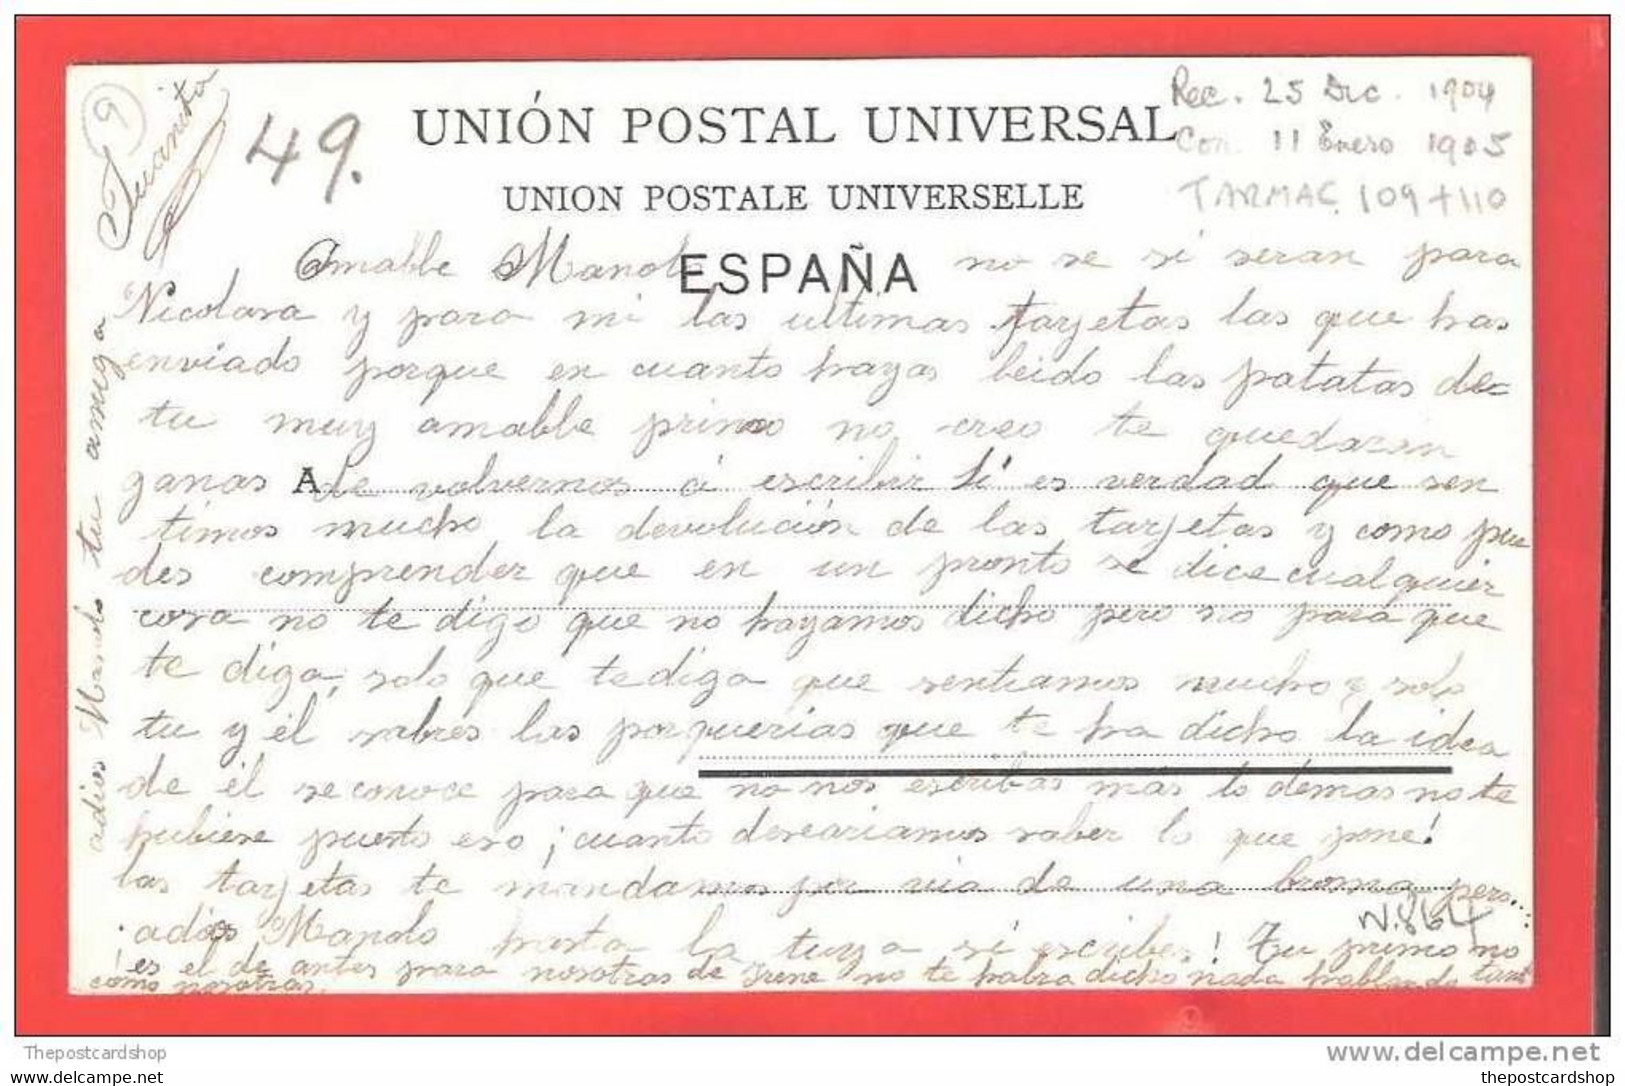 9
Juanito
49.
UNIÓN POSTAL UNIVERSAL
UNION POSTALE UNIVERSELLE
ESPAÑA
Rec. 25 Dic. 1904
Con 11 Enero 1905
TARMAC. 109 + 110
Amable Manolo no se si seran para
Nicolasa y para mi las ultimas tarjetas las que has
enviado porque en cuanto hayas leido las patatas de
tu muy amable primo no creo te quedaran
ganas A de volvernos á escribir Si es verdad que sen
timos mucho la devolución de las tarjetas y como pue
des comprender que en un pronto se dice cualquier
cosa no te digo que no hayamos dicho pero no para que
te diga, solo que te diga que sentiamos mucho y solo
tu y él sabres las porquerias que te ha dicho la idea
de él se conoce para que no nos escribas mas lo demas no te
hubiese puesto eso ¡cuanto deseariamos saber lo que pone!
las tarjetas te mandamos por via de una broma pero...
adios Manolo hasta la tuya si escribes! Tu primo no
es el de antes para nosotras de Irene no te habra dicho nada hablando tant
como nosotras.
N.864
adios Manolo tu amiga
Thepostcardshop
www.delcampe.net
thepostcardshop